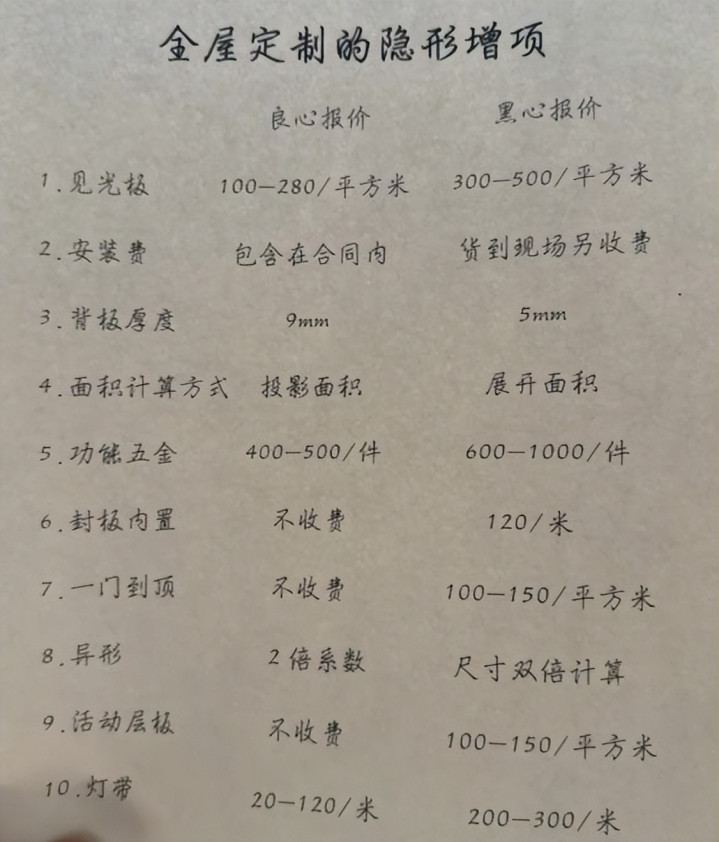 全屋定制的隐形增项
良心报价 黑心报价
1.见光板 100—280/平方米 300—500/平方米
2.安装费 包含在合同内 货到现场另收费
3.背板厚度 9mm 5mm
4.面积计算方式 投影面积 展开面积
5.功能五金 400—500/件 600—1000/件
6.封板内置 不收费 120/米
7.一门到顶 不收费 100—150/平方米
8.异形 2倍系数 尺寸双倍计算
9.活动层板 不收费 100—150/平方米
10.灯带 20—120/米 200—300/米